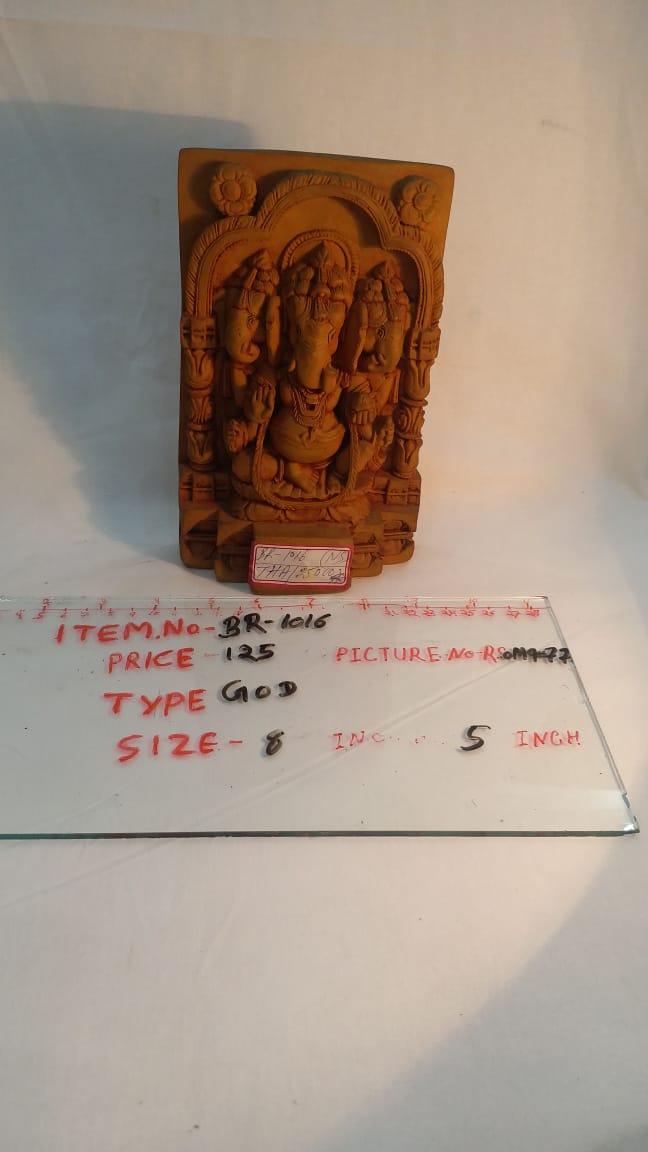 BR-1016 (NS
THA/250
ITEM.No-BR-1016
PRICE-125 PICTURE-No-RS
TYPE GOD
SIZE-8 INC 5 INCH